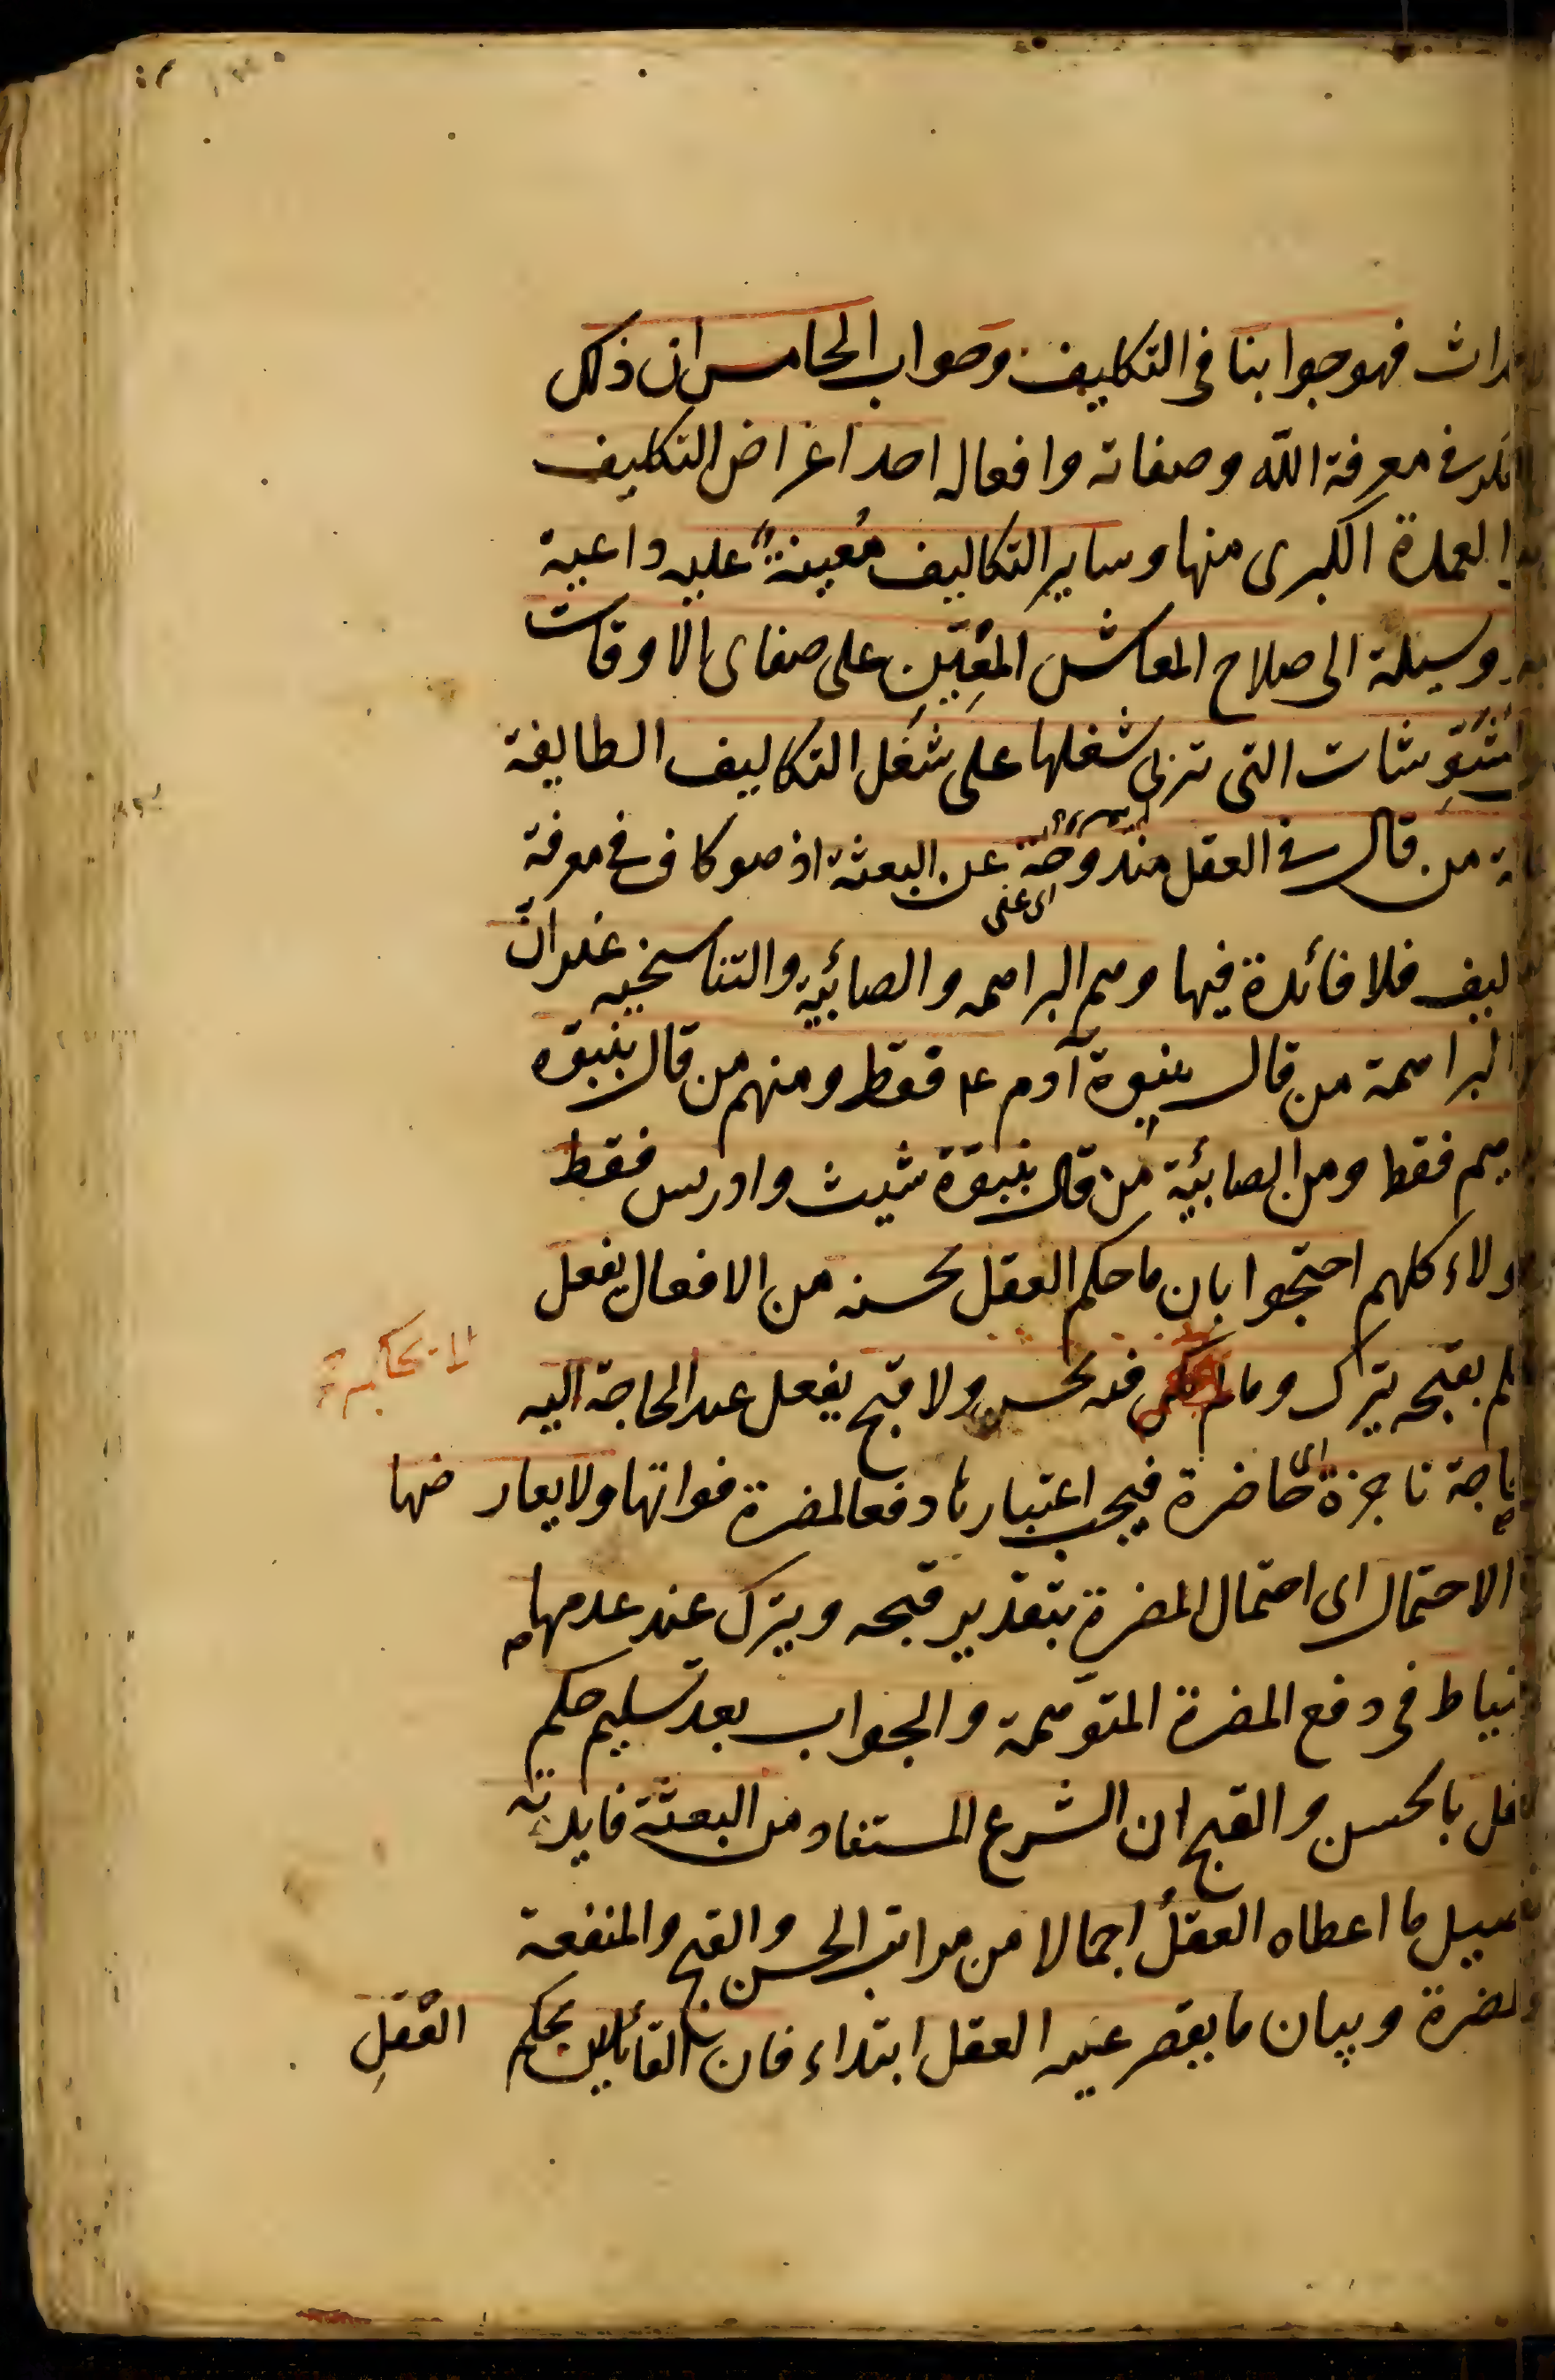 فهو جوابنا فى التكليف وجواب الخامس ان ذلك
فى معرفة الله وصفاته وافعاله احد اغراض التكليف
العمدة الكبرى منها وساير التكاليف مُعينةٌ عليه داعية
وسيلة الى صلاح المعاش المُعِين على صفاى الاوقات
التى تربى شغلها على شغل التكاليف الطايفة
من قال فى العقل مندوحة عن البعثة اذ هو كاف فى معرفة
اى غنى
فلا فائدة فيها وهم البراهمه والصائبية والتناسخيه غير انّ
البراهمة من قال بنبوة آدم ع فقط ومنهم من قال بنبوّة
فقط ومن الصابئية من قال بنبوّة شيث وادريس فقط
كلهم احتجوا بان ما حكم العقل بحسنه من الافعال يفعل
بقبحه يترك وما لم يحكم فيه بحسن ولا قبح يفعل عند الحاجة اليه
ناجزة اى حاضرة فيجب اعتبارها دفعا لمضرة فواتها ولا يعارضها
الاحتمال اى احتمال المضرة بتقدير قبحه ويترك عند عدمها
فى دفع المضرة المتوهمة والجواب بعد تسليم حكم
بالحسن والقبح ان الشرع المستفاد من البعثة فايدته
ما اعطاه العقلُ اجمالا من مراتب الحسن والقبح والمنفعة
وبيان ما يقصر عنه العقل ابتداء فان القائلين بحكم العقلِ